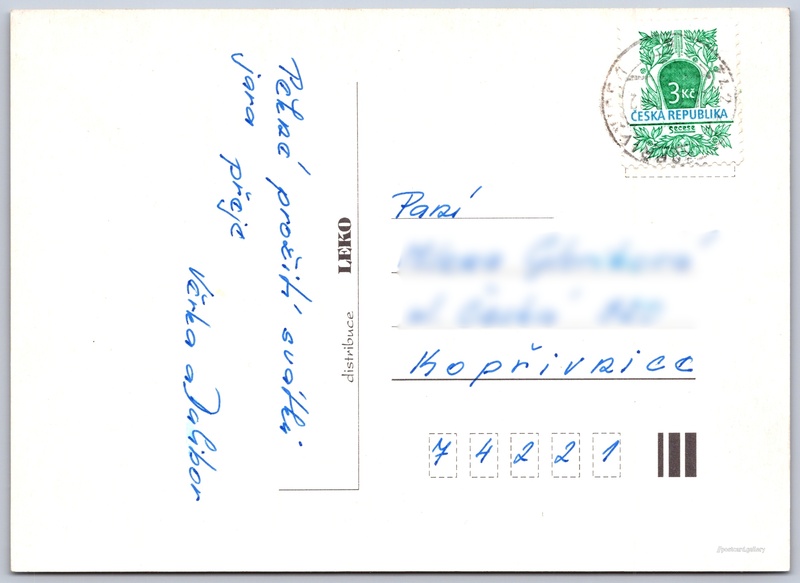 Pěkné prožití svátků
jara přeje
Věrka a Dalibor
distribuce LEKO
3 Kč
ČESKÁ REPUBLIKA
secese
Paní
Kopřivnice
74221
postcard.gallery